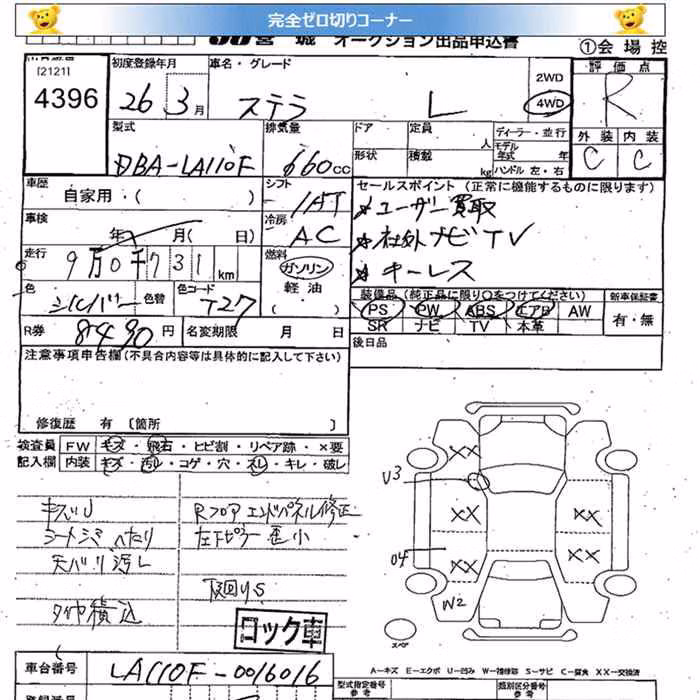 完全ゼロ切りコーナー
宮城 オークション出品申込書 ①会場控
[2121]
4396
初度登録年月 車名・グレード 2WD 4WD 評価点
26年 3月 ステラ L R
型式 排気量 ドア 定員 人 ディーラー・並行 外装 内装
DBA-LA110F 660cc 形状 積載 kg モデル年式 年 ハンドル 左・右 C C
車歴 自家用・( ) シフト IAT セールスポイント (正常に機能するものに限ります)
車検 年 月( 日) 冷房 AC ユーザー買取
走行 9万0千731km 燃料 ガソリン・軽油 社外ナビTV
キーレス
色 シルバー 色替 色コード T27 装備品 (純正品に限り○をつけてください) 新車保証書
PS PW ABS エアB AW 有・無
SR ナビ TV 本革
R券 8490円 名変期限 月 日 後日品
注意事項申告欄(不具合内容等は具体的に記入して下さい)
修復歴 有〔箇所 〕
検査員 FW キズ・飛石・ヒビ割・リペア跡・×要
記入欄 内装 キズ・汚レ・コゲ・穴・スレ・キレ・破レ
キズU Rフロアエンドパネル修正
シートシミへたり 左下ピラー歪小
天バリ汚レ
下回りS
タイヤ積込
ロック車
U3
XX XX XX XX XX
04
W2
スペア
A-キズ E-エクボ U-凹み W-補修跡 S-サビ C-腐食 XX-交換済
車台番号 LA110F-0016016 型式指定番号 参考 類別区分番号 参考
登録番号